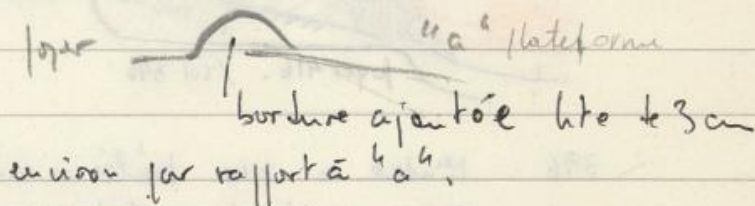 foyer "a" plateforme
bordure ajoutée hte de 3 cm
environ par rapport à "a".